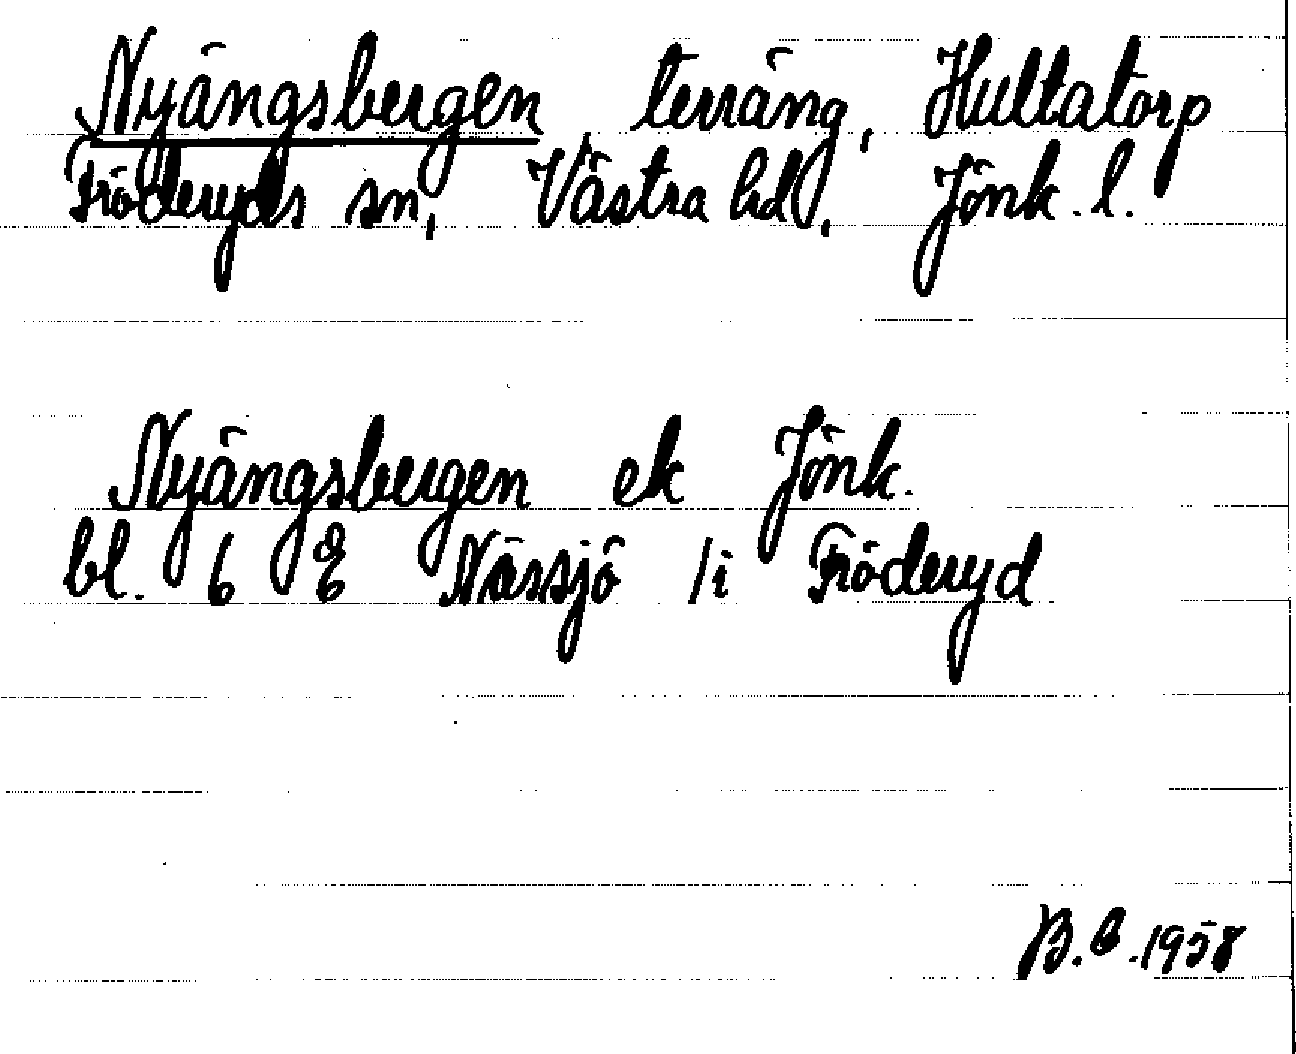 Nyängsbergen, terräng, Hultatorp
Fröderyds sn, Västra hd, Jönk. l.
Nyängsbergen ek Jönk.
bl. 6 8 Nässjö /i Fröderyd
B. 1958